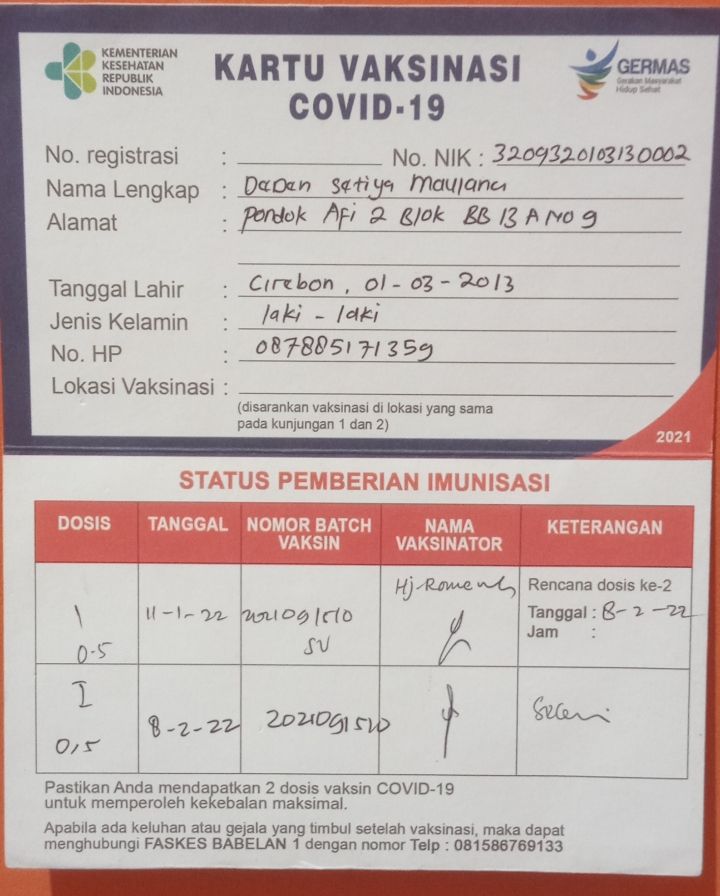 KEMENTERIAN
KESEHATAN
REPUBLIK
INDONESIA
KARTU VAKSINASI
COVID-19
GERMAS
Gerakan Masyarakat
Hidup Sehat
No. registrasi : No. NIK : 3209320103130002
Nama Lengkap : Dadan Setiya Maulana
Alamat : Pondok Afi 2 Blok BB 13 A No 9
Tanggal Lahir : Cirebon, 01-03-2013
Jenis Kelamin : laki-laki
No. HP : 087885171359
Lokasi Vaksinasi :
(disarankan vaksinasi di lokasi yang sama
pada kunjungan 1 dan 2)
2021
STATUS PEMBERIAN IMUNISASI
DOSIS TANGGAL NOMOR BATCH VAKSIN NAMA VAKSINATOR KETERANGAN
I 0.5 11-1-22 2021091510 SV Rencana dosis ke-2
Tanggal : 8-2-22
Jam :
I 0,5 8-2-22 2021091510
Pastikan Anda mendapatkan 2 dosis vaksin COVID-19
untuk memperoleh kekebalan maksimal.
Apabila ada keluhan atau gejala yang timbul setelah vaksinasi, maka dapat
menghubungi FASKES BABELAN 1 dengan nomor Telp : 081586769133